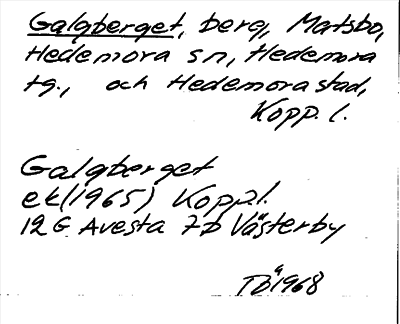 Galgberget, berg, Matsbo,
Hedemora sn, Hedemora
tg., och Hedemora stad,
Kopp. l.
Galgberget
ek (1965) Kopp.l.
12 G Avesta 7D Västerby
TÅ 1968